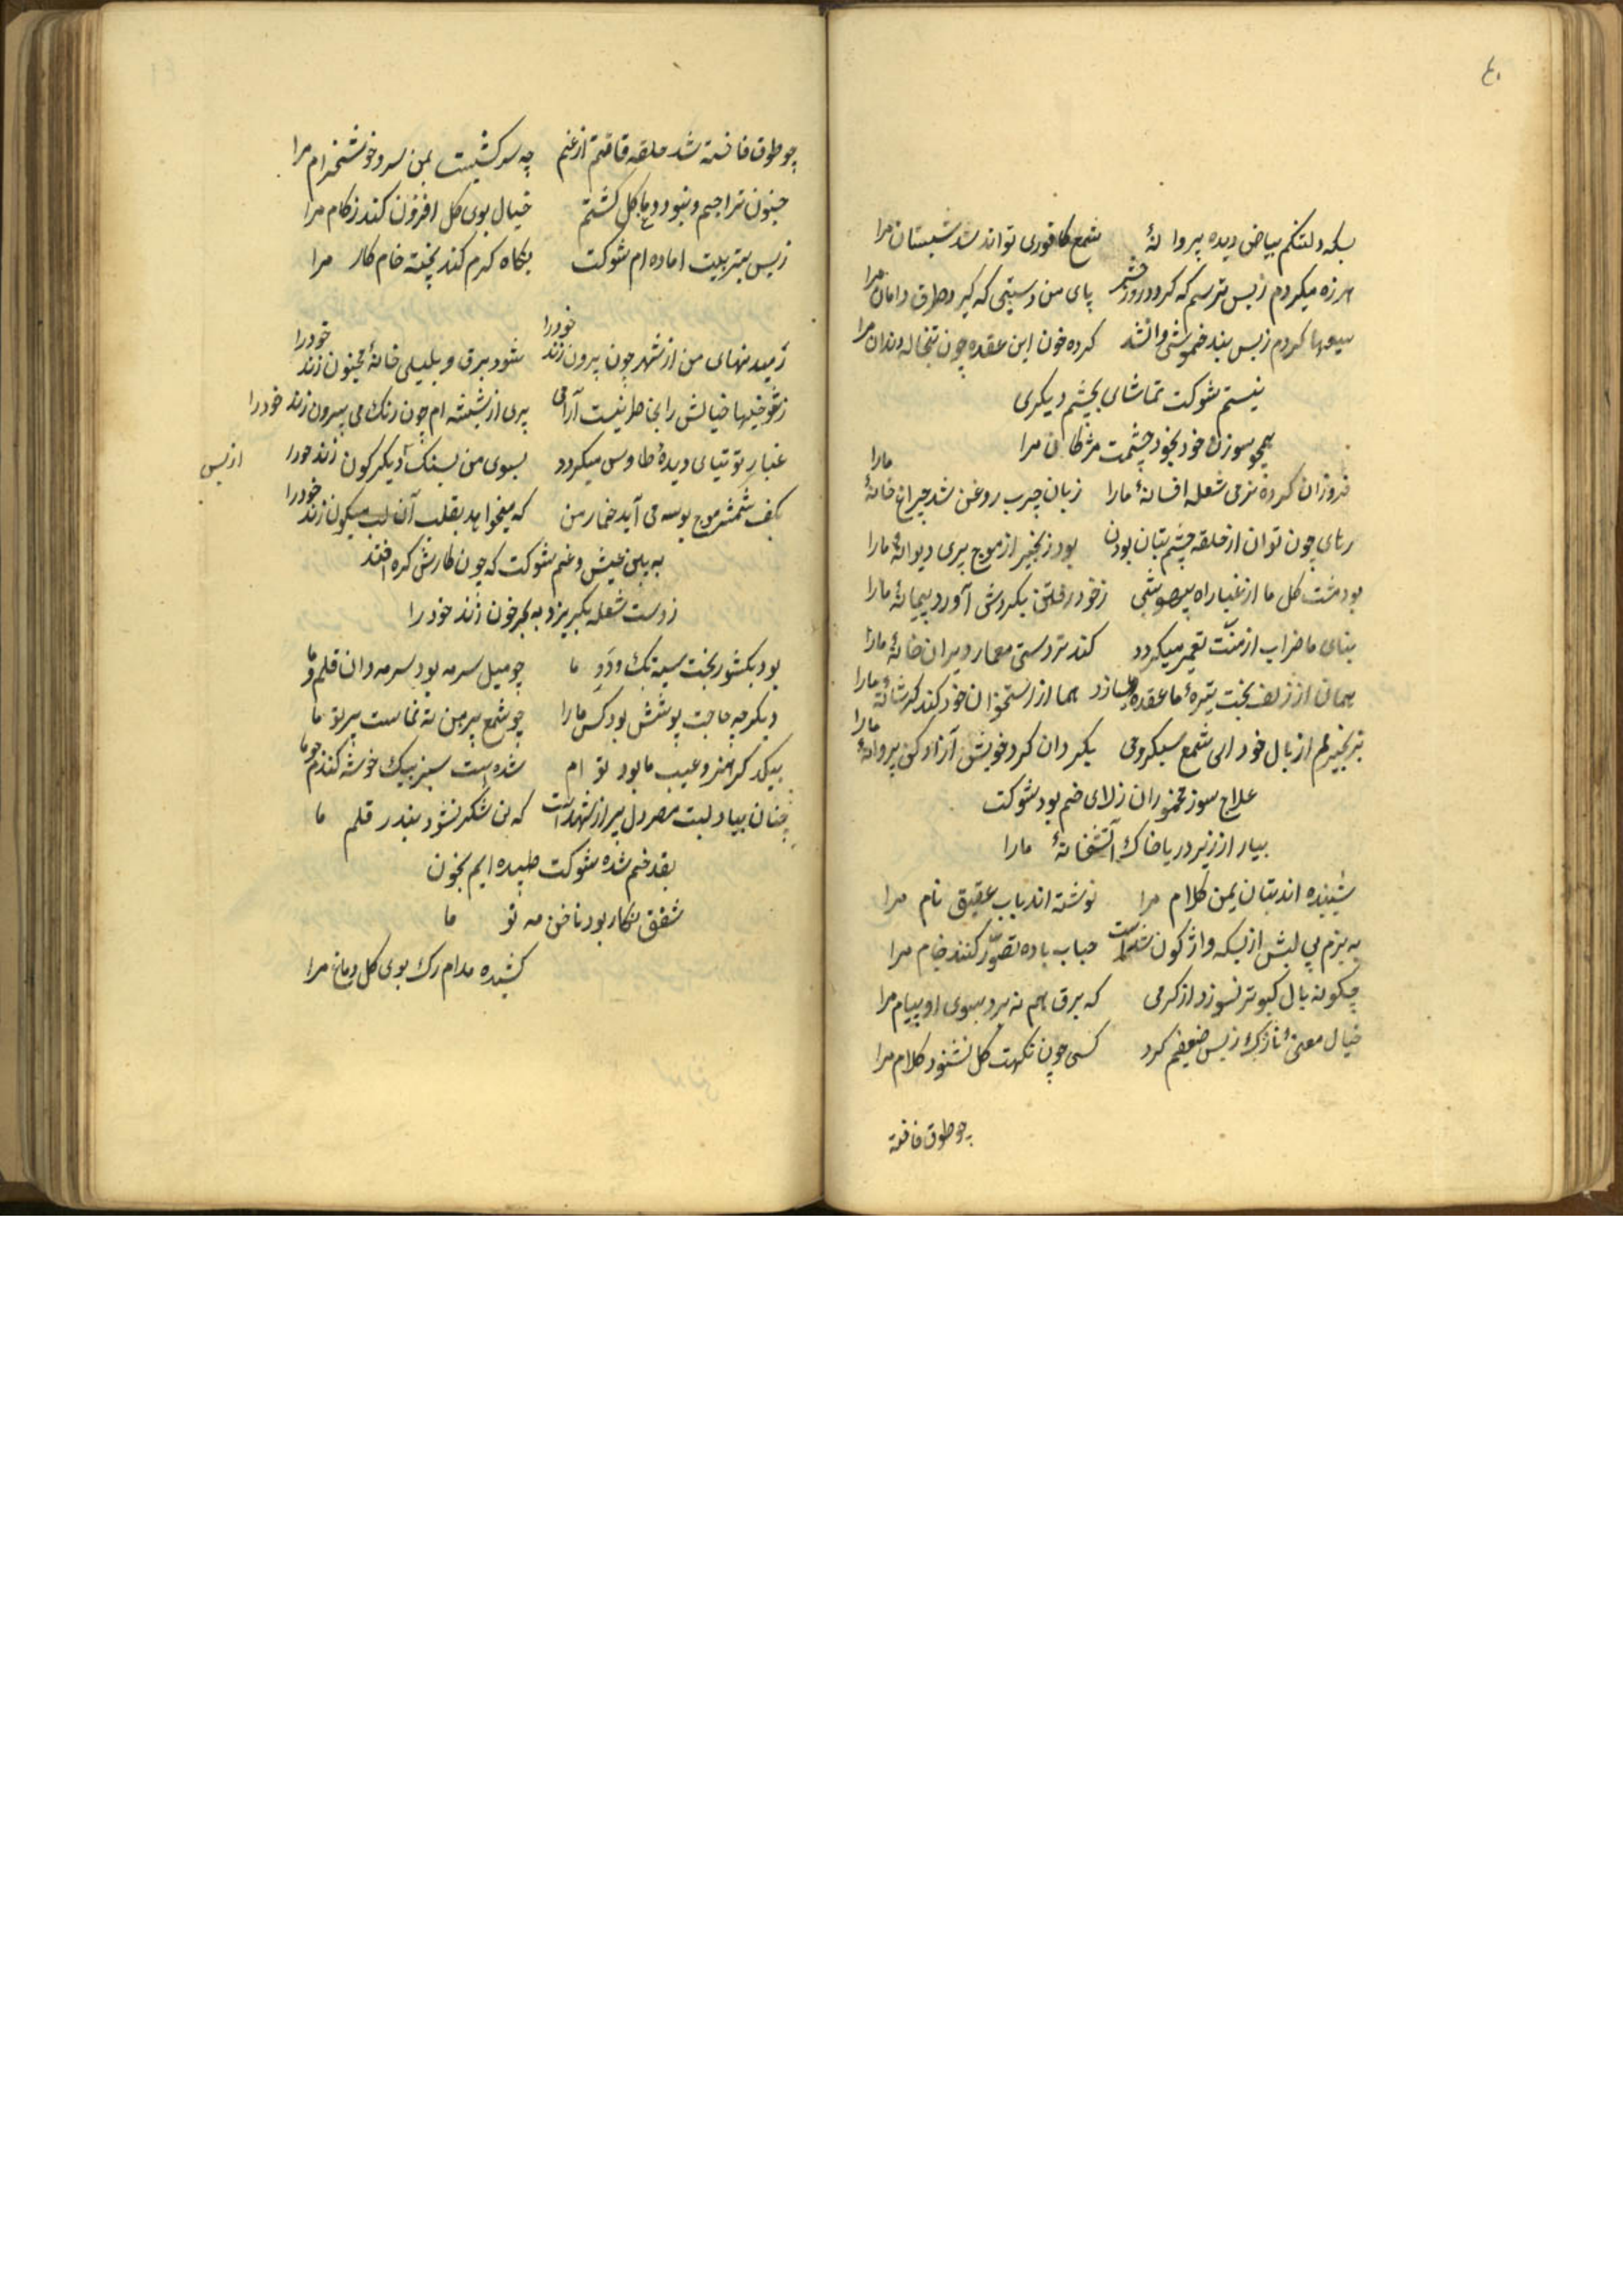 ٤٠
بسکه دلتنکم بیاض دیده پروانهٔ شمع کافوری تواند شد شبستان مرا
هرزه میکردم زبس ترسم که کردد روز حشر پای من دستی که کیرد طرف دامان مرا
سعیها کردم زبس بند خموشی وانشد کرده خون این عقده چون تبخاله دندان مرا
نیستم شوکت تماشای بچشم دیکری
همچو سوزن خود بخود چشمست مژکان مرا
فروزان کرده نرمی شعله افسانهٔ مارا زبان چرب روغن شد چراغ خانهٔ مارا
رهای چون توان از حلقه چشم بتان بودن بود زنجیر از موج پری دیوانهٔ مارا
بود مشت کل ما از غبار راه بیهوشی زخود رفتن بکردش آورد پیمانهٔ مارا
بنای ما خراب از منت تعمیر میکردد کند تردستی معمار ویران خانهٔ مارا
همان از زلف بخت تیرهٔ ما عقده میسازد هما از استخوان خود کند کر شانهٔ مارا
بزنجیرم از بال خود ای شمع سبکروحی بکردان کرد خویش آزاد کن پروانهٔ مارا
علاج سوز مخموران زلای خم بود شوکت
بیار از زیر دریا خاک آتشخانهٔ مارا
شنیده اند بتان یمن کلام مرا نوشته اند باب عقیق نام مرا
به بزم بی لبش از بسکه واژکون شده است حباب باده تصور کنند جام مرا
چکونه بال کبوتر نسوزد از کرمی که برق هم نه برد بسوی او پیام مرا
خیال معنیٔ نازک زبس ضعیفم کرد کسی چون نکهت کل نشنود کلام مرا
چو طوق فاخته
چو طوق فاخته شد حلقه قامتم از غم چه سرکشیست بمن سرو خوشخرام مرا
جنون تراجیم و بیخود دماغ کل کشتم خیال بوی کل افزون کند زکام مرا
زبس بتربیت اماده ام شوکت نکاه کرم کند پخته خام کار مرا
زمید تنهای من از شهر چون بیرون زند خود را شود برق و بلیلی خانهٔ مجنون زند خود را
زشوخیها خیالش را بخاطر نیست آرامی پری از شیشه ام چون رنک می بیرون زند خود را
غبار توتیای دیدهٔ طاوس میکردد بسوی من بسنک آ دیکرکون زند خود را
بکف شمشیر موج بوسه می آید خمار من که میخواهد بقلب آن لب میکون زند خود را
از بس
به بین عیش و غم شوکت که چون کارش کره افتد
زدست شعله بکریزد به بحر خون زند خود را
بود بکشور بخت سیه تک و دو ما چو میل سرمه بود سرمه دان قلمرو ما
دیکر چه حاجت پوشش بود کس مارا چو شمع پیرهن ته نماست پرتو ما
بیکدکر هنر و عیب ما بود توام شده است سبز بیک خوشه کندم و جو ما
چنان بیاد لبت مصر دل پر از شهد است که نی شکر نشود بند در قلم ما
بقد خم شده شوکت طپیده ایم بخون
شفق نکار بود ناخن مه نو ما
کشیده مدام رک بوی کل دماغ مرا